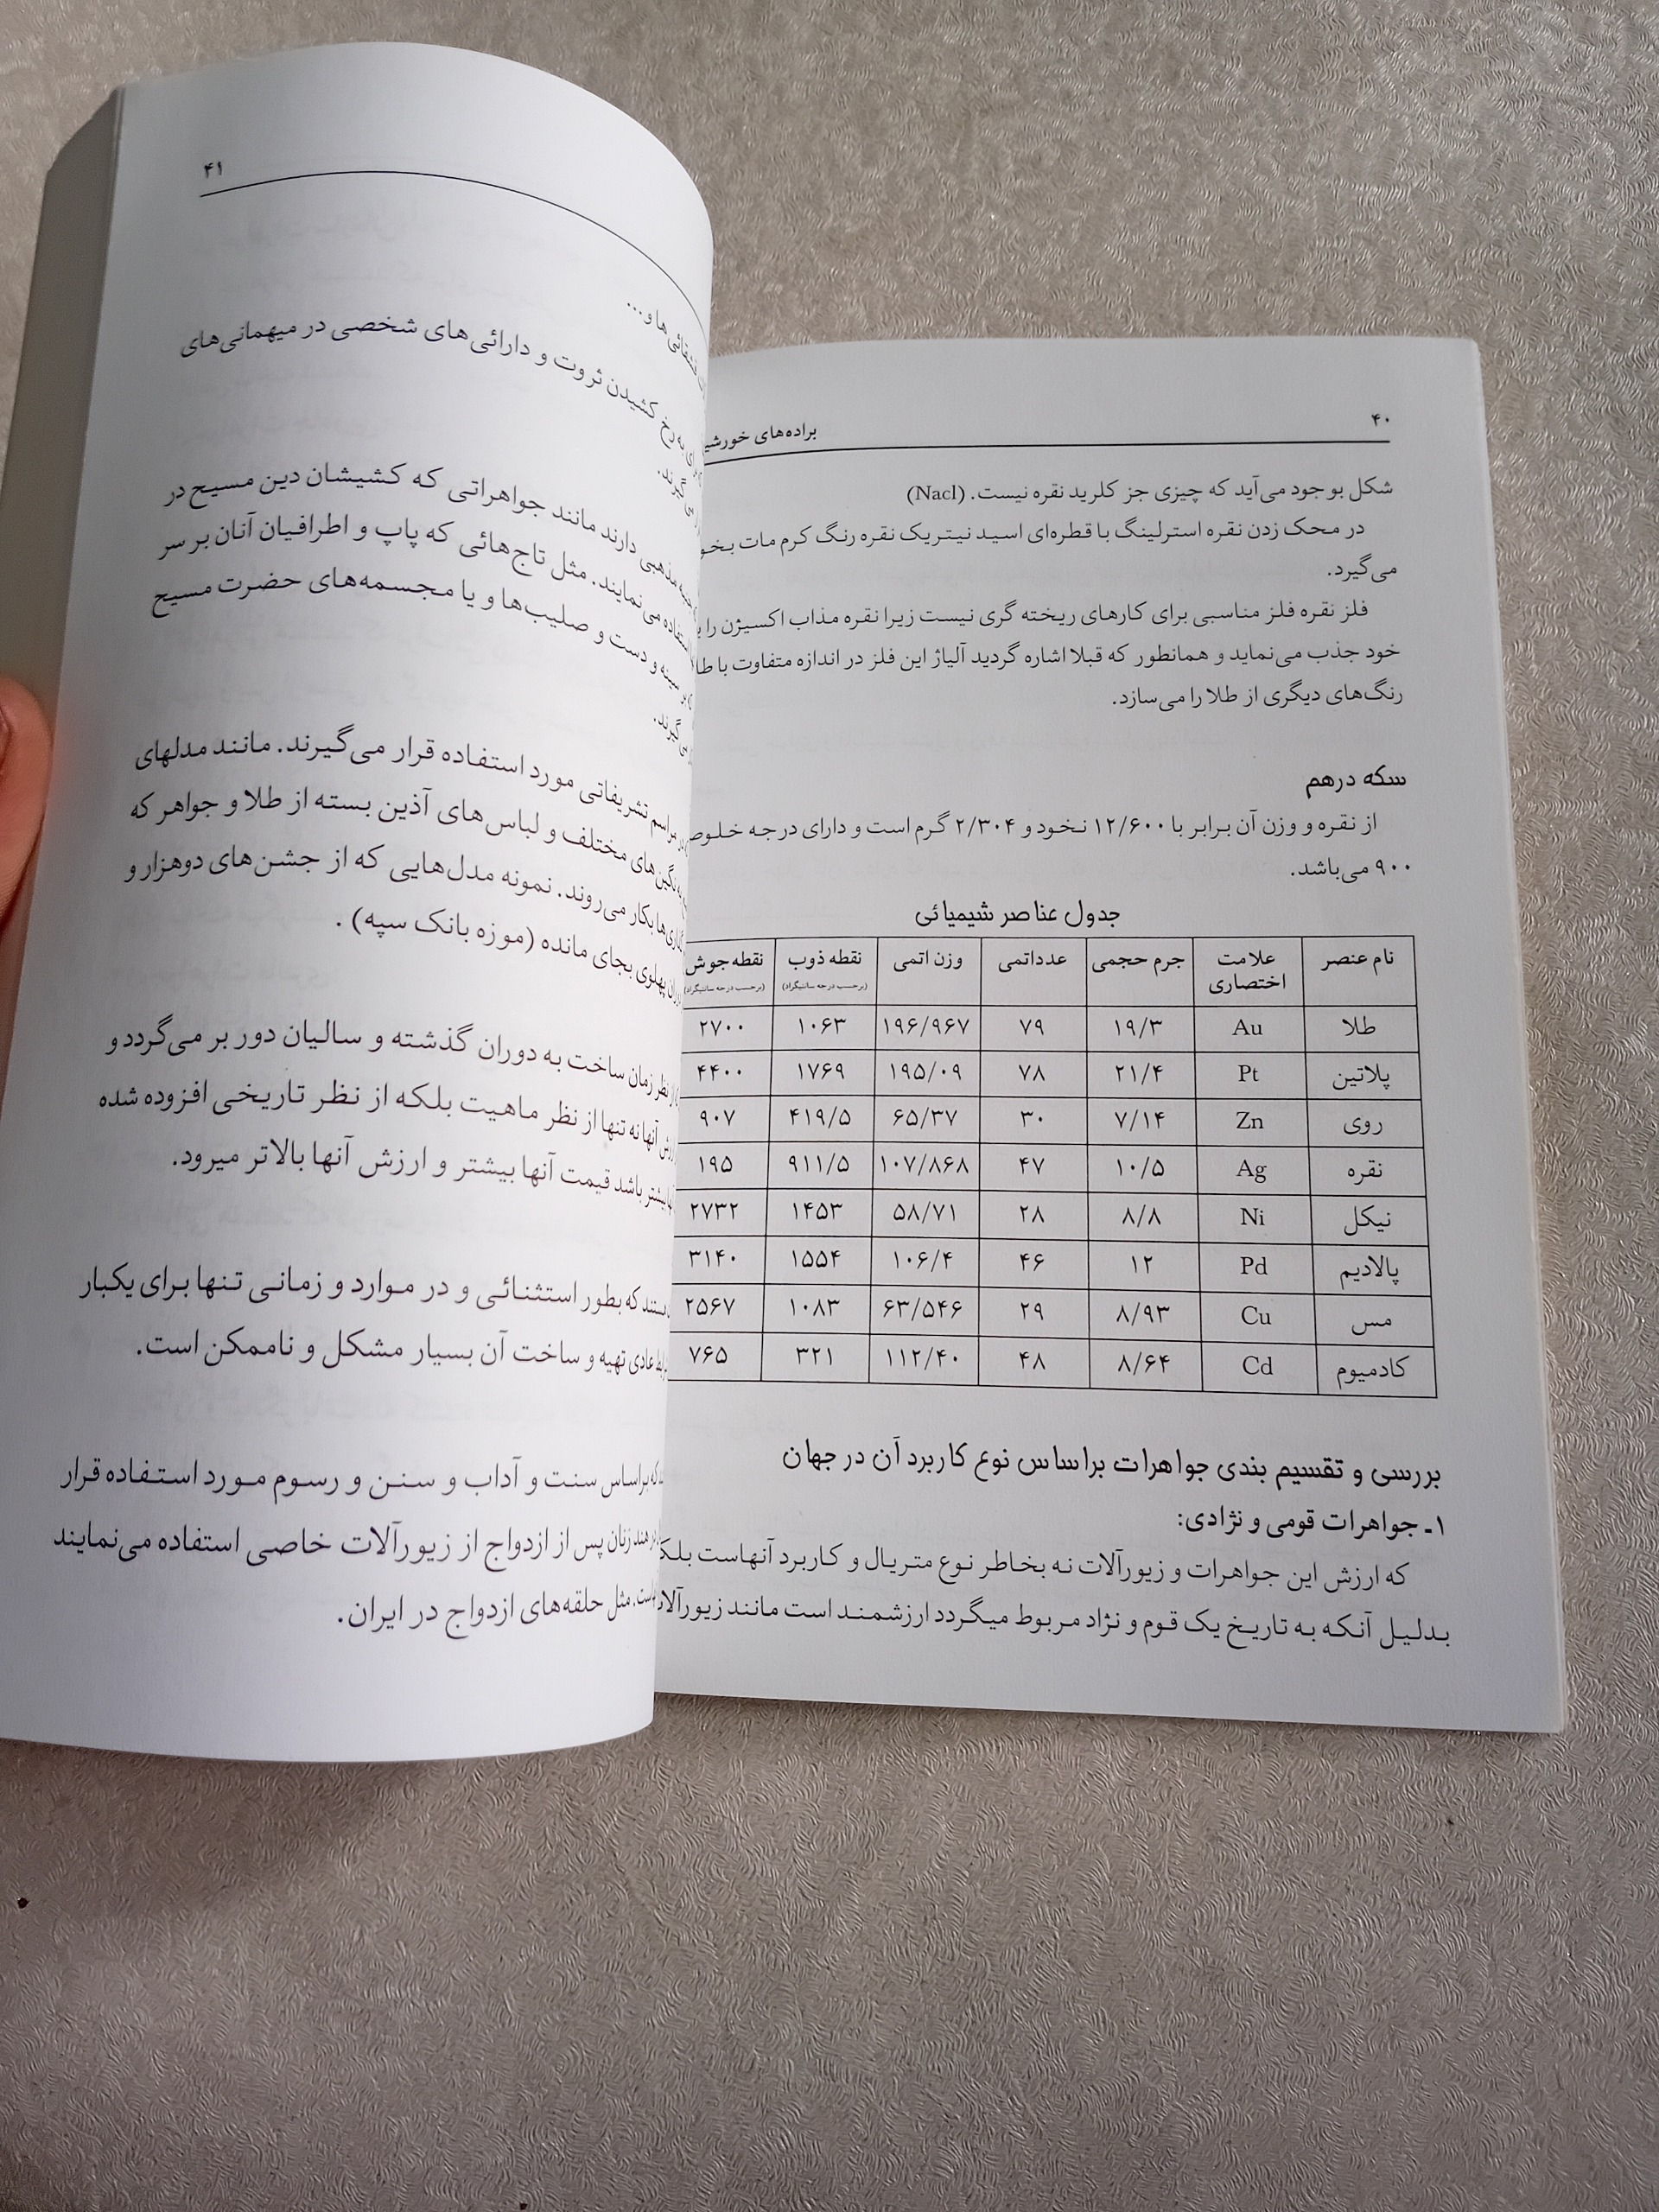 ۴۰
براده‌های
شکل بوجود می‌آید که چیزی جز کلرید نقره نیست. (Nacl)
در محک زدن نقره استرلینگ با قطره‌ای اسید نیتریک نقره رنگ کرم مات
می‌گیرد.
فلز نقره فلز مناسبی برای کارهای ریخته گری نیست زیرا نقره مذاب اکسیژن را
خود جذب می‌نماید و همانطور که قبلا اشاره گردید آلیاژ این فلز در اندازه متفاوت با
رنگ‌های دیگری از طلا را می‌سازد.
سکه درهم
از نقره و وزن آن برابر با ۱۲/۶۰۰ نخود و ۲/۳۰۴ گرم است و دارای درجه
۹۰۰ می‌باشد.
جدول عناصر شیمیائی
نام عنصر علامت اختصاری جرم حجمی عدداتمی وزن اتمی نقطه ذوب (برحسب درجه سانتیگراد) نقطه جوش (برحسب درجه سانتیگراد)
طلا Au ۱۹/۳ ۷۹ ۱۹۶/۹۶۷ ۱۰۶۳ ۲۷۰۰
پلاتین Pt ۲۱/۴ ۷۸ ۱۹۵/۰۹ ۱۷۶۹ ۴۴۰۰
روی Zn ۷/۱۴ ۳۰ ۶۵/۳۷ ۴۱۹/۵ ۹۰۷
نقره Ag ۱۰/۵ ۴۷ ۱۰۷/۸۶۸ ۹۱۱/۵ ۱۹۵
نیکل Ni ۸/۸ ۲۸ ۵۸/۷۱ ۱۴۵۳ ۲۷۳۲
پالادیم Pd ۱۲ ۴۶ ۱۰۶/۴ ۱۵۵۴ ۳۱۴۰
مس Cu ۸/۹۳ ۲۹ ۶۳/۵۴۶ ۱۰۸۳ ۲۵۶۷
کادمیوم Cd ۸/۶۴ ۴۸ ۱۱۲/۴۰ ۳۲۱ ۷۶۵
بررسی و تقسیم بندی جواهرات براساس نوع کاربرد آن در جهان
۱ـ جواهرات قومی و نژادی:
که ارزش این جواهرات و زیورآلات نه بخاطر نوع متریال و کاربرد آنهاست
بدلیل آنکه به تاریخ یک قوم و نژاد مربوط میگردد ارزشمند است مانند
۴۱
قشقائی‌ها و...
رخ کشیدن ثروت و دارائی‌های شخصی در میهمانی‌های
گیرند.
مذهبی دارند مانند جواهراتی که کشیشان دین مسیح در
استفاده می‌نمایند. مثل تاج‌هائی که پاپ و اطرافیان آنان بر سر
سینه و دست و صلیب‌ها و یا مجسمه‌های حضرت مسیح
گیرند.
مراسم تشریفاتی مورد استفاده قرار می‌گیرند. مانند مدلهای
نگین‌های مختلف و لباس‌های آذین بسته از طلا و جواهر که
بکار می‌روند. نمونه مدل‌هایی که از جشن‌های دوهزار و
پهلوی بجای مانده (موزه بانک سپه).
از نظر زمان ساخت به دوران گذشته و سالیان دور بر می‌گردد و
آنها نه تنها از نظر ماهیت بلکه از نظر تاریخی افزوده شده
بیشتر باشد قیمت آنها بیشتر و ارزش آنها بالاتر میرود.
که بطور استثنائی و در موارد و زمانی تنها برای یکبار
عادی تهیه و ساخت آن بسیار مشکل و ناممکن است.
که براساس سنت و آداب و سنن و رسوم مورد استفاده قرار
هند زنان پس از ازدواج از زیورآلات خاصی استفاده می‌نمایند
مثل حلقه‌های ازدواج در ایران.